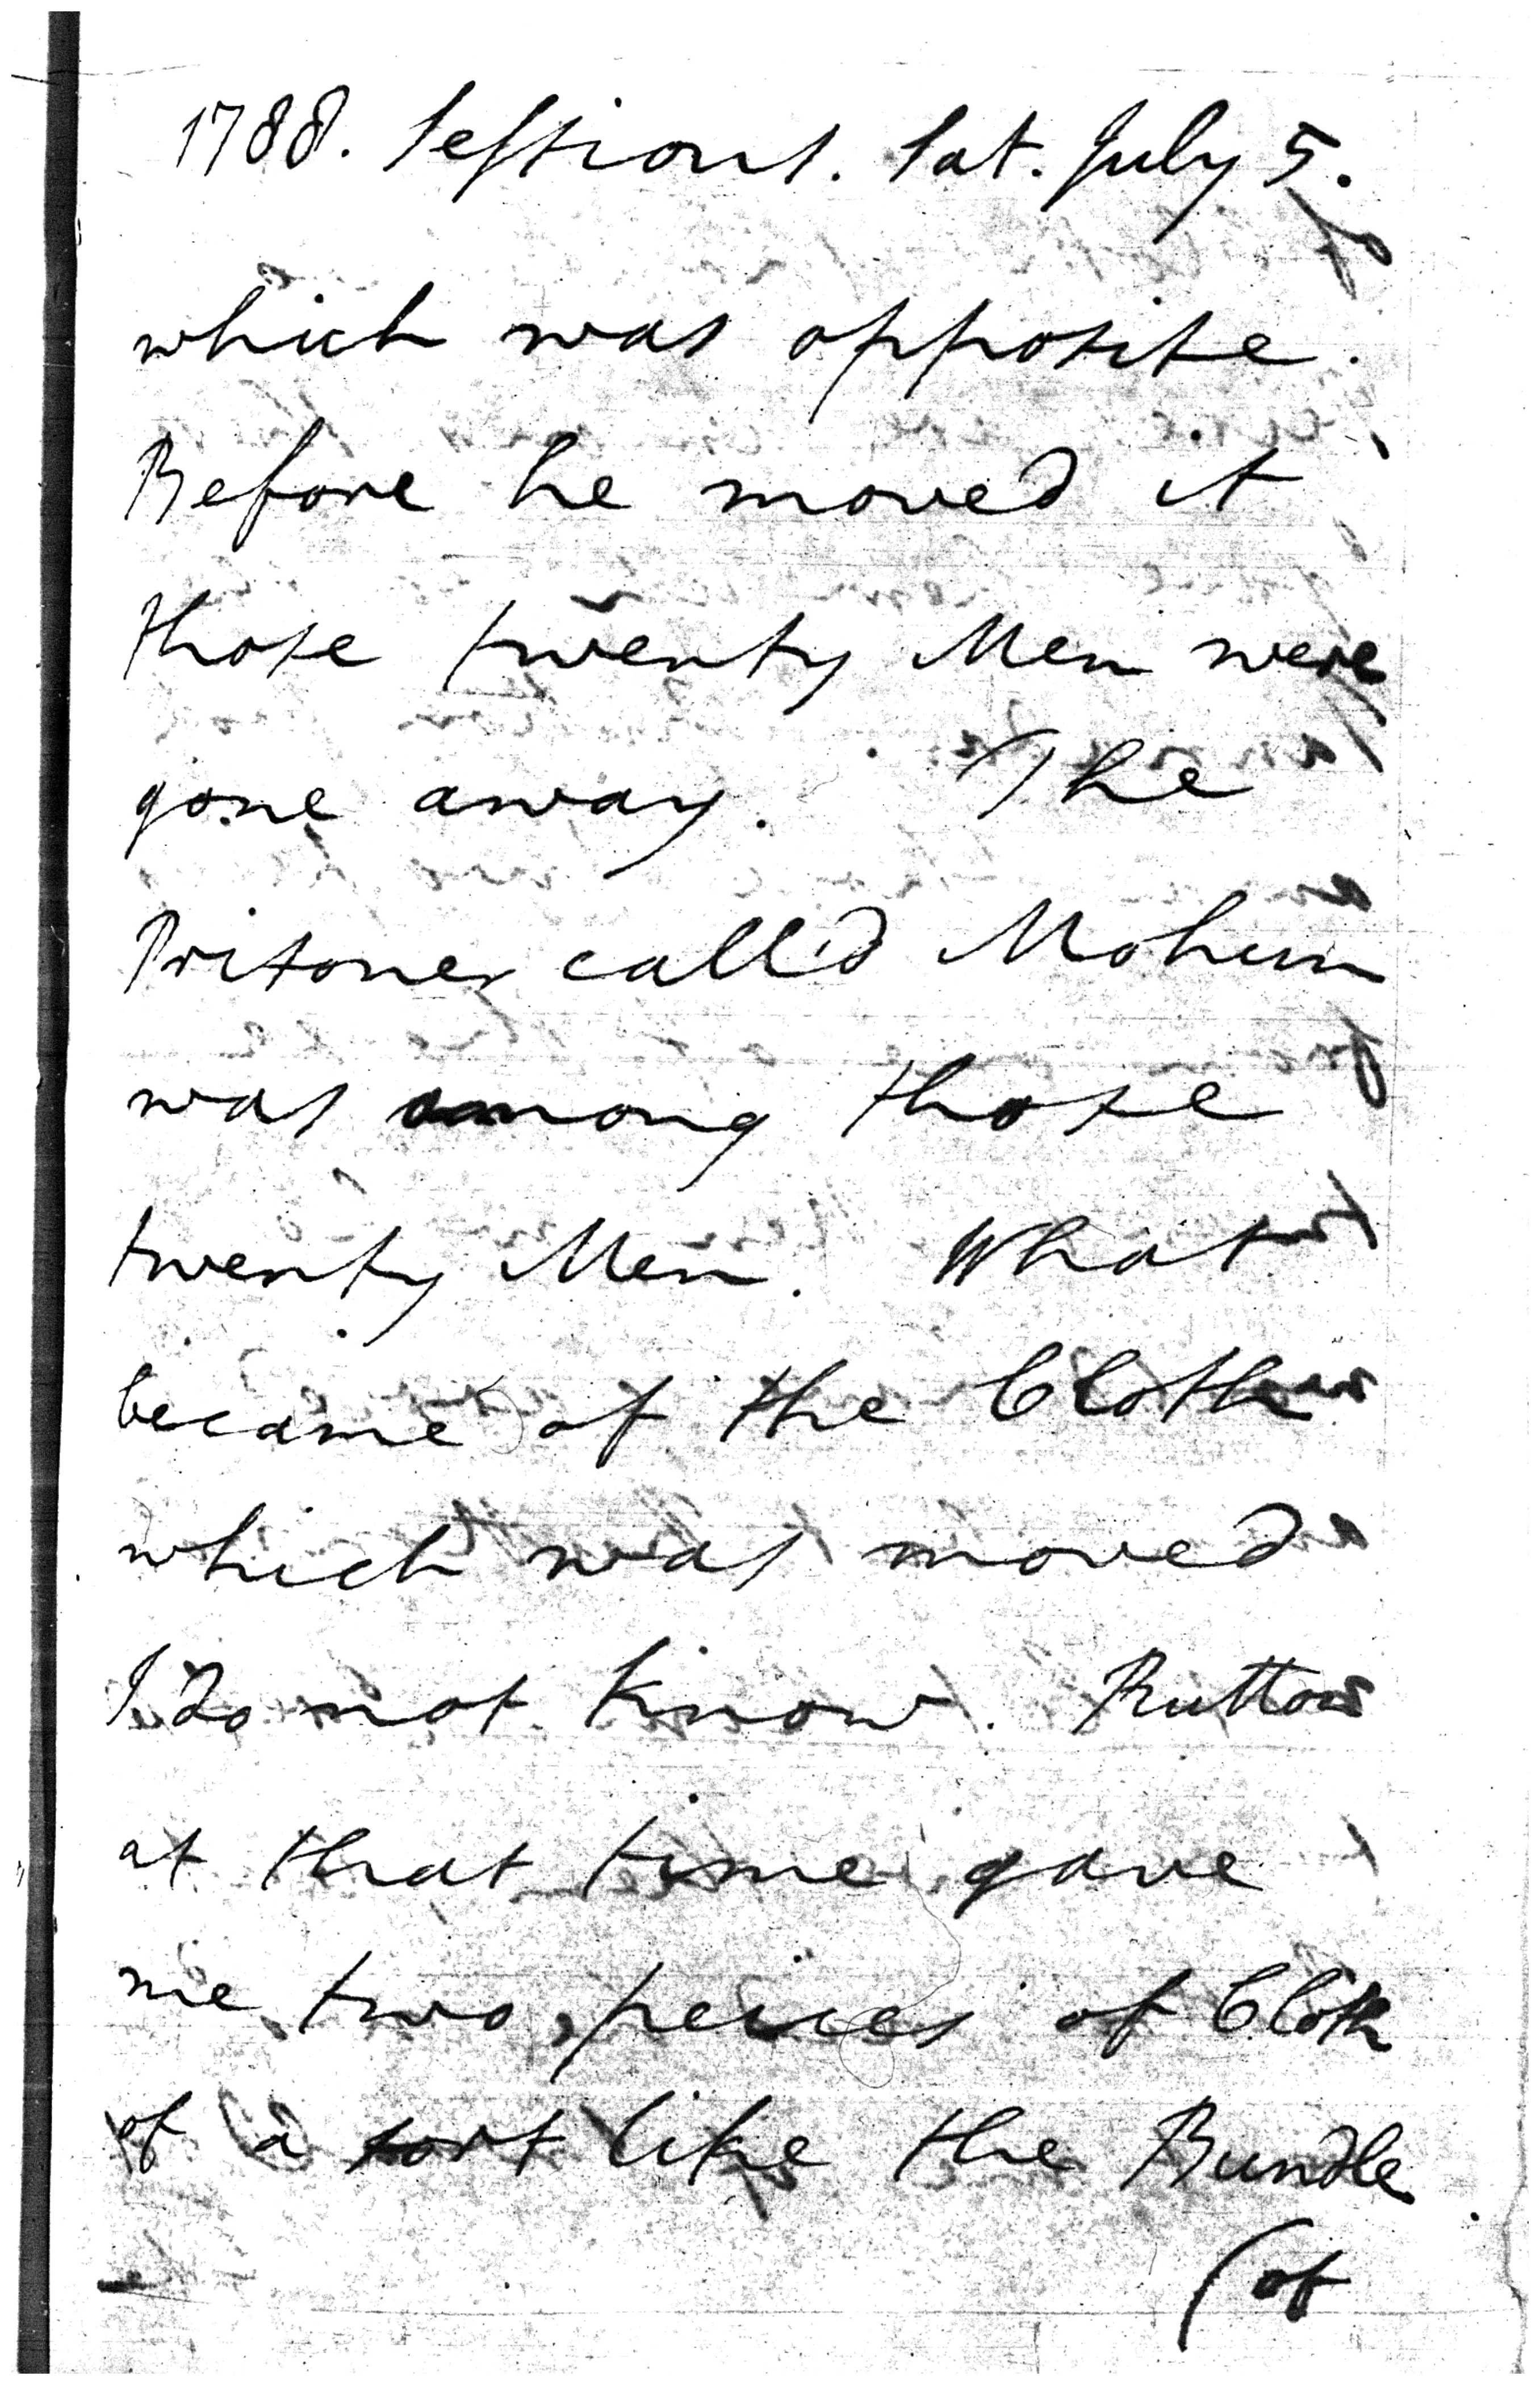 1788. Sessions. Sat. July 5.
which was opposite.
Before he moved it
those twenty Men were
gone away. The
Prisoner call'd Mohun
was among those
twenty Men. What
became of the Cloth
which was moved
I do not know. Ruttow
at that time gave
me two peices of Cloth
of a sort like the Bundle
(of